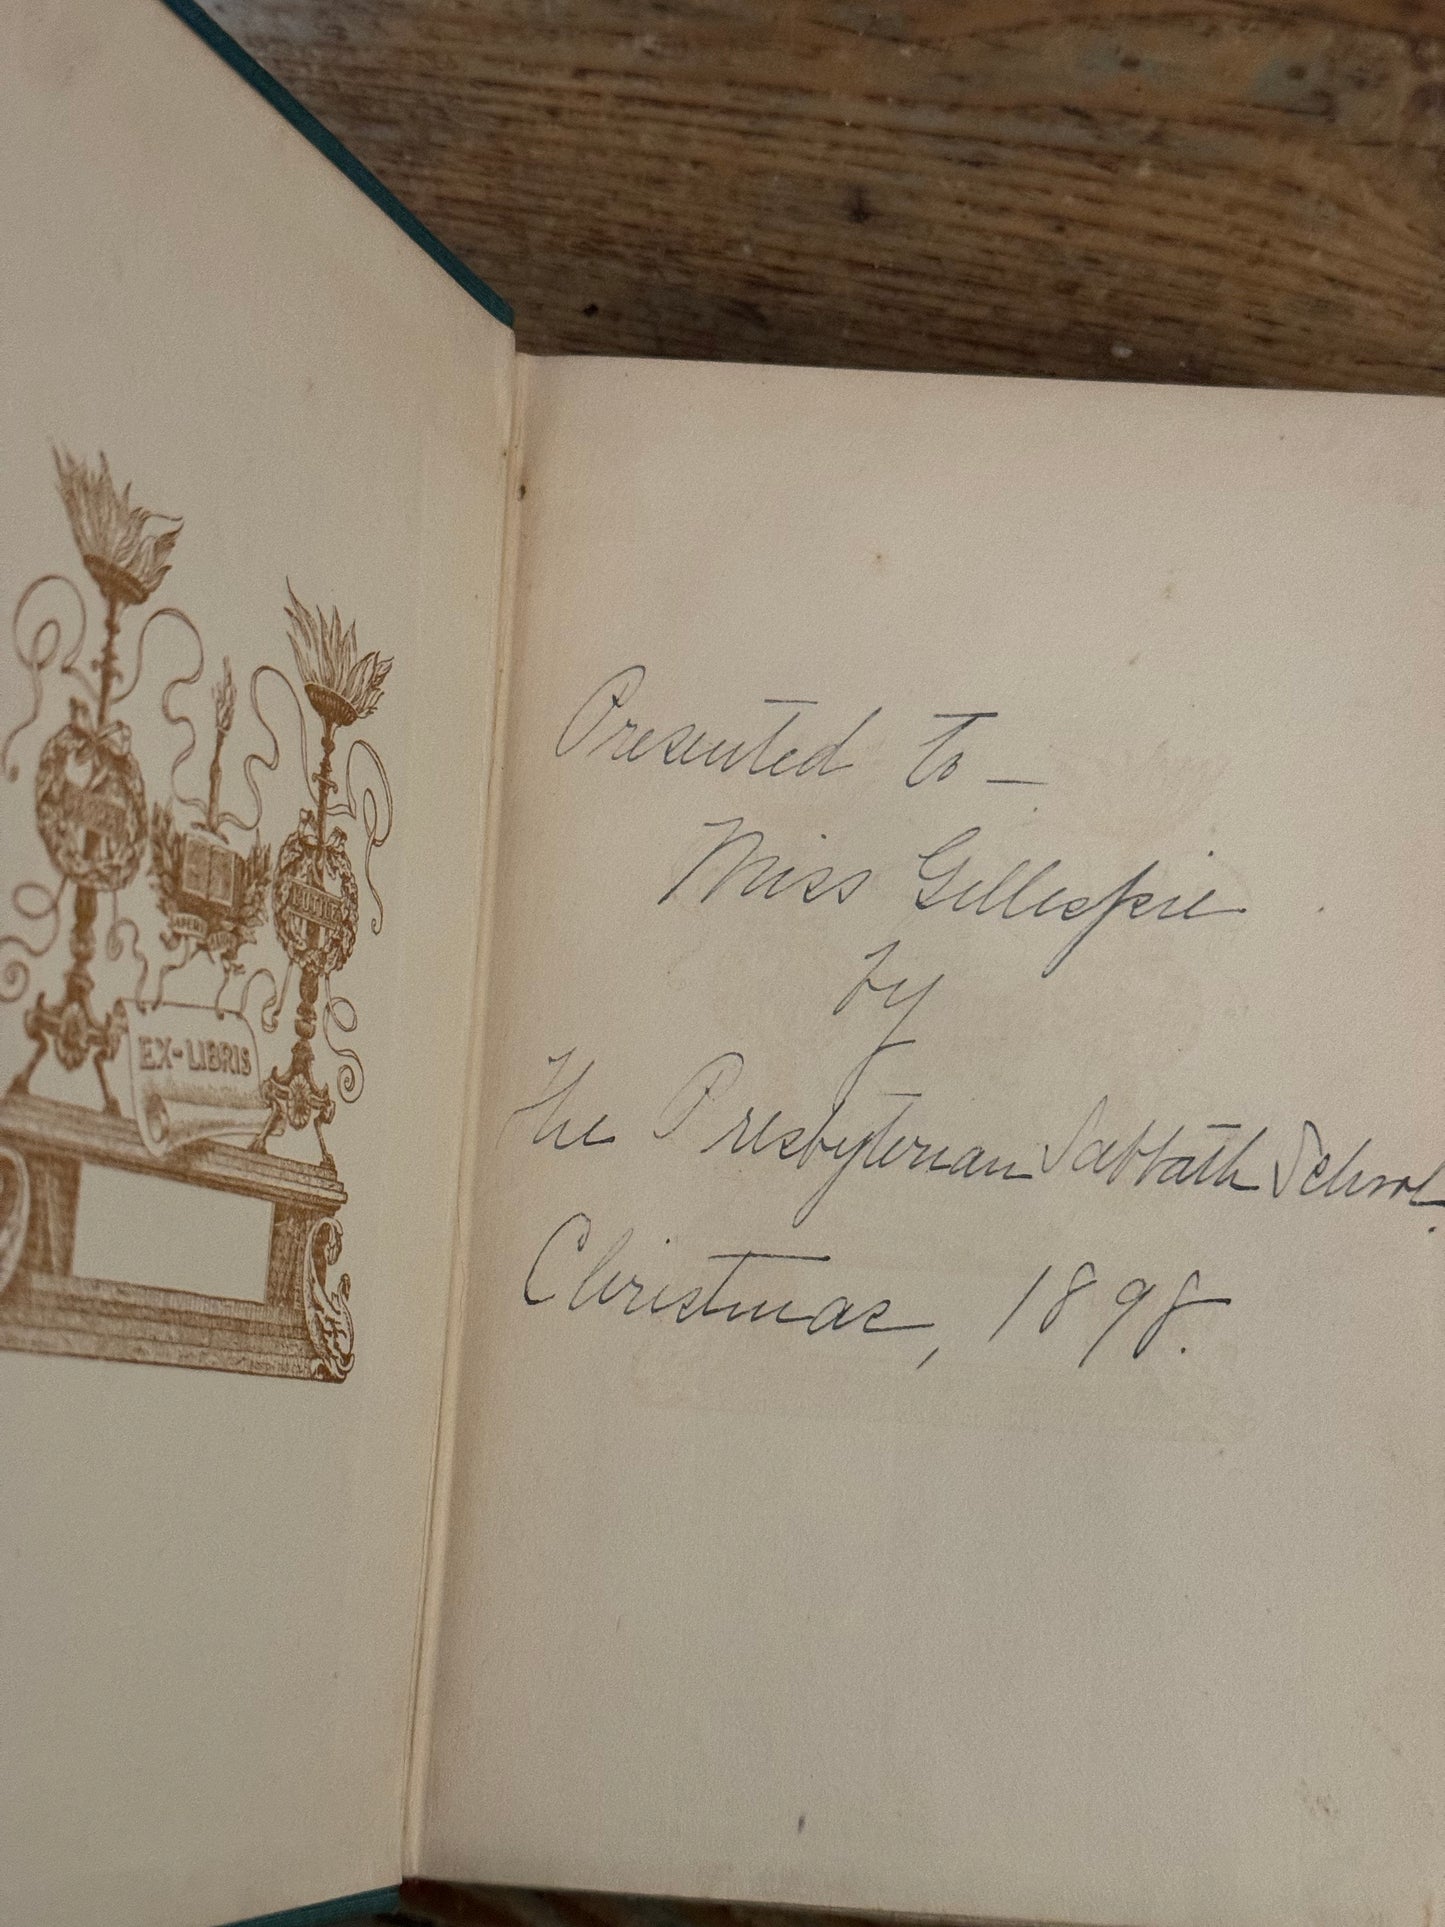 EX-LIBRIS
Presented to —
Miss Gillespie
by
The Presbyterian Sabbath School.
Christmas, 1898.